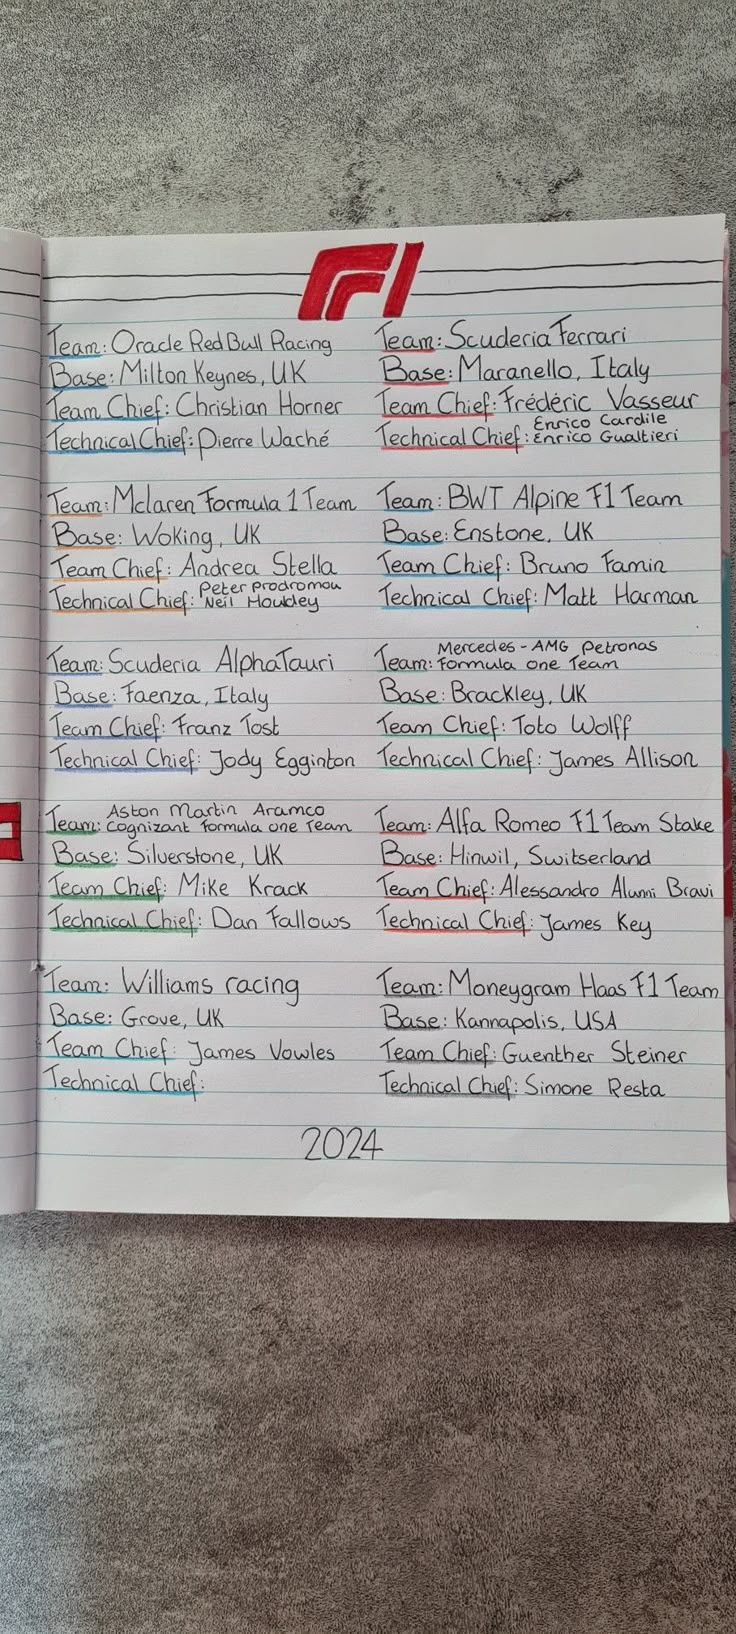 F1
Team: Oracle Red Bull Racing
Base: Milton Keynes, UK
Team Chief: Christian Horner
Technical Chief: Pierre Waché
Team: Scuderia Ferrari
Base: Maranello, Italy
Team Chief: Frédéric Vasseur
Enrico Cardile
Technical Chief: Enrico Gualtieri
Team: Mclaren Formula 1 Team
Base: Woking, UK
Team Chief: Andrea Stella
Peter Prodromou
Technical Chief: Neil Houldey
Team: BWT Alpine F1 Team
Base: Enstone, UK
Team Chief: Bruno Famin
Technical Chief: Matt Harman
Team: Scuderia AlphaTauri
Base: Faenza, Italy
Team Chief: Franz Tost
Technical Chief: Jody Egginton
Mercedes - AMG Petronas
Team: Formula One Team
Base: Brackley, UK
Team Chief: Toto Wolff
Technical Chief: James Allison
Aston Martin Aramco
Team: Cognizant Formula One Team
Base: Silverstone, UK
Team Chief: Mike Krack
Technical Chief: Dan Fallows
Team: Alfa Romeo F1 Team Stake
Base: Hinwil, Switserland
Team Chief: Alessandro Alunni Bravi
Technical Chief: James Key
Team: Williams racing
Base: Grove, UK
Team Chief: James Vowles
Technical Chief:
Team: Moneygram Haas F1 Team
Base: Kannapolis, USA
Team Chief: Guenther Steiner
Technical Chief: Simone Resta
2024